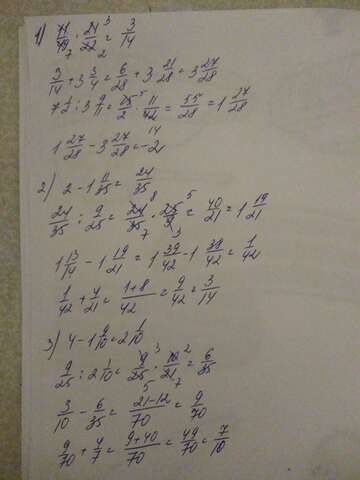 1) 11/49 · 21/22 = 3/14
3/14 + 3 3/4 = 6/28 + 3 21/28 = 3 27/28
7 1/2 : 3 9/11 = 15/2 · 11/42 = 55/28 = 1 27/28
1 27/28 - 3 27/28 = -2
2) 2 - 1 11/35 = 24/35
24/35 : 9/25 = 24/35 · 25/9 = 40/21 = 1 19/21
1 13/14 - 1 19/21 = 1 39/42 - 1 38/42 = 1/42
1/42 + 4/21 = 1+8/42 = 9/42 = 3/14
3) 4 - 1 9/10 = 2 1/10
9/25 : 2 1/10 = 9/25 · 10/21 = 6/35
3/10 - 6/35 = 21-12/70 = 9/70
9/70 + 4/7 = 9+40/70 = 49/70 = 7/10